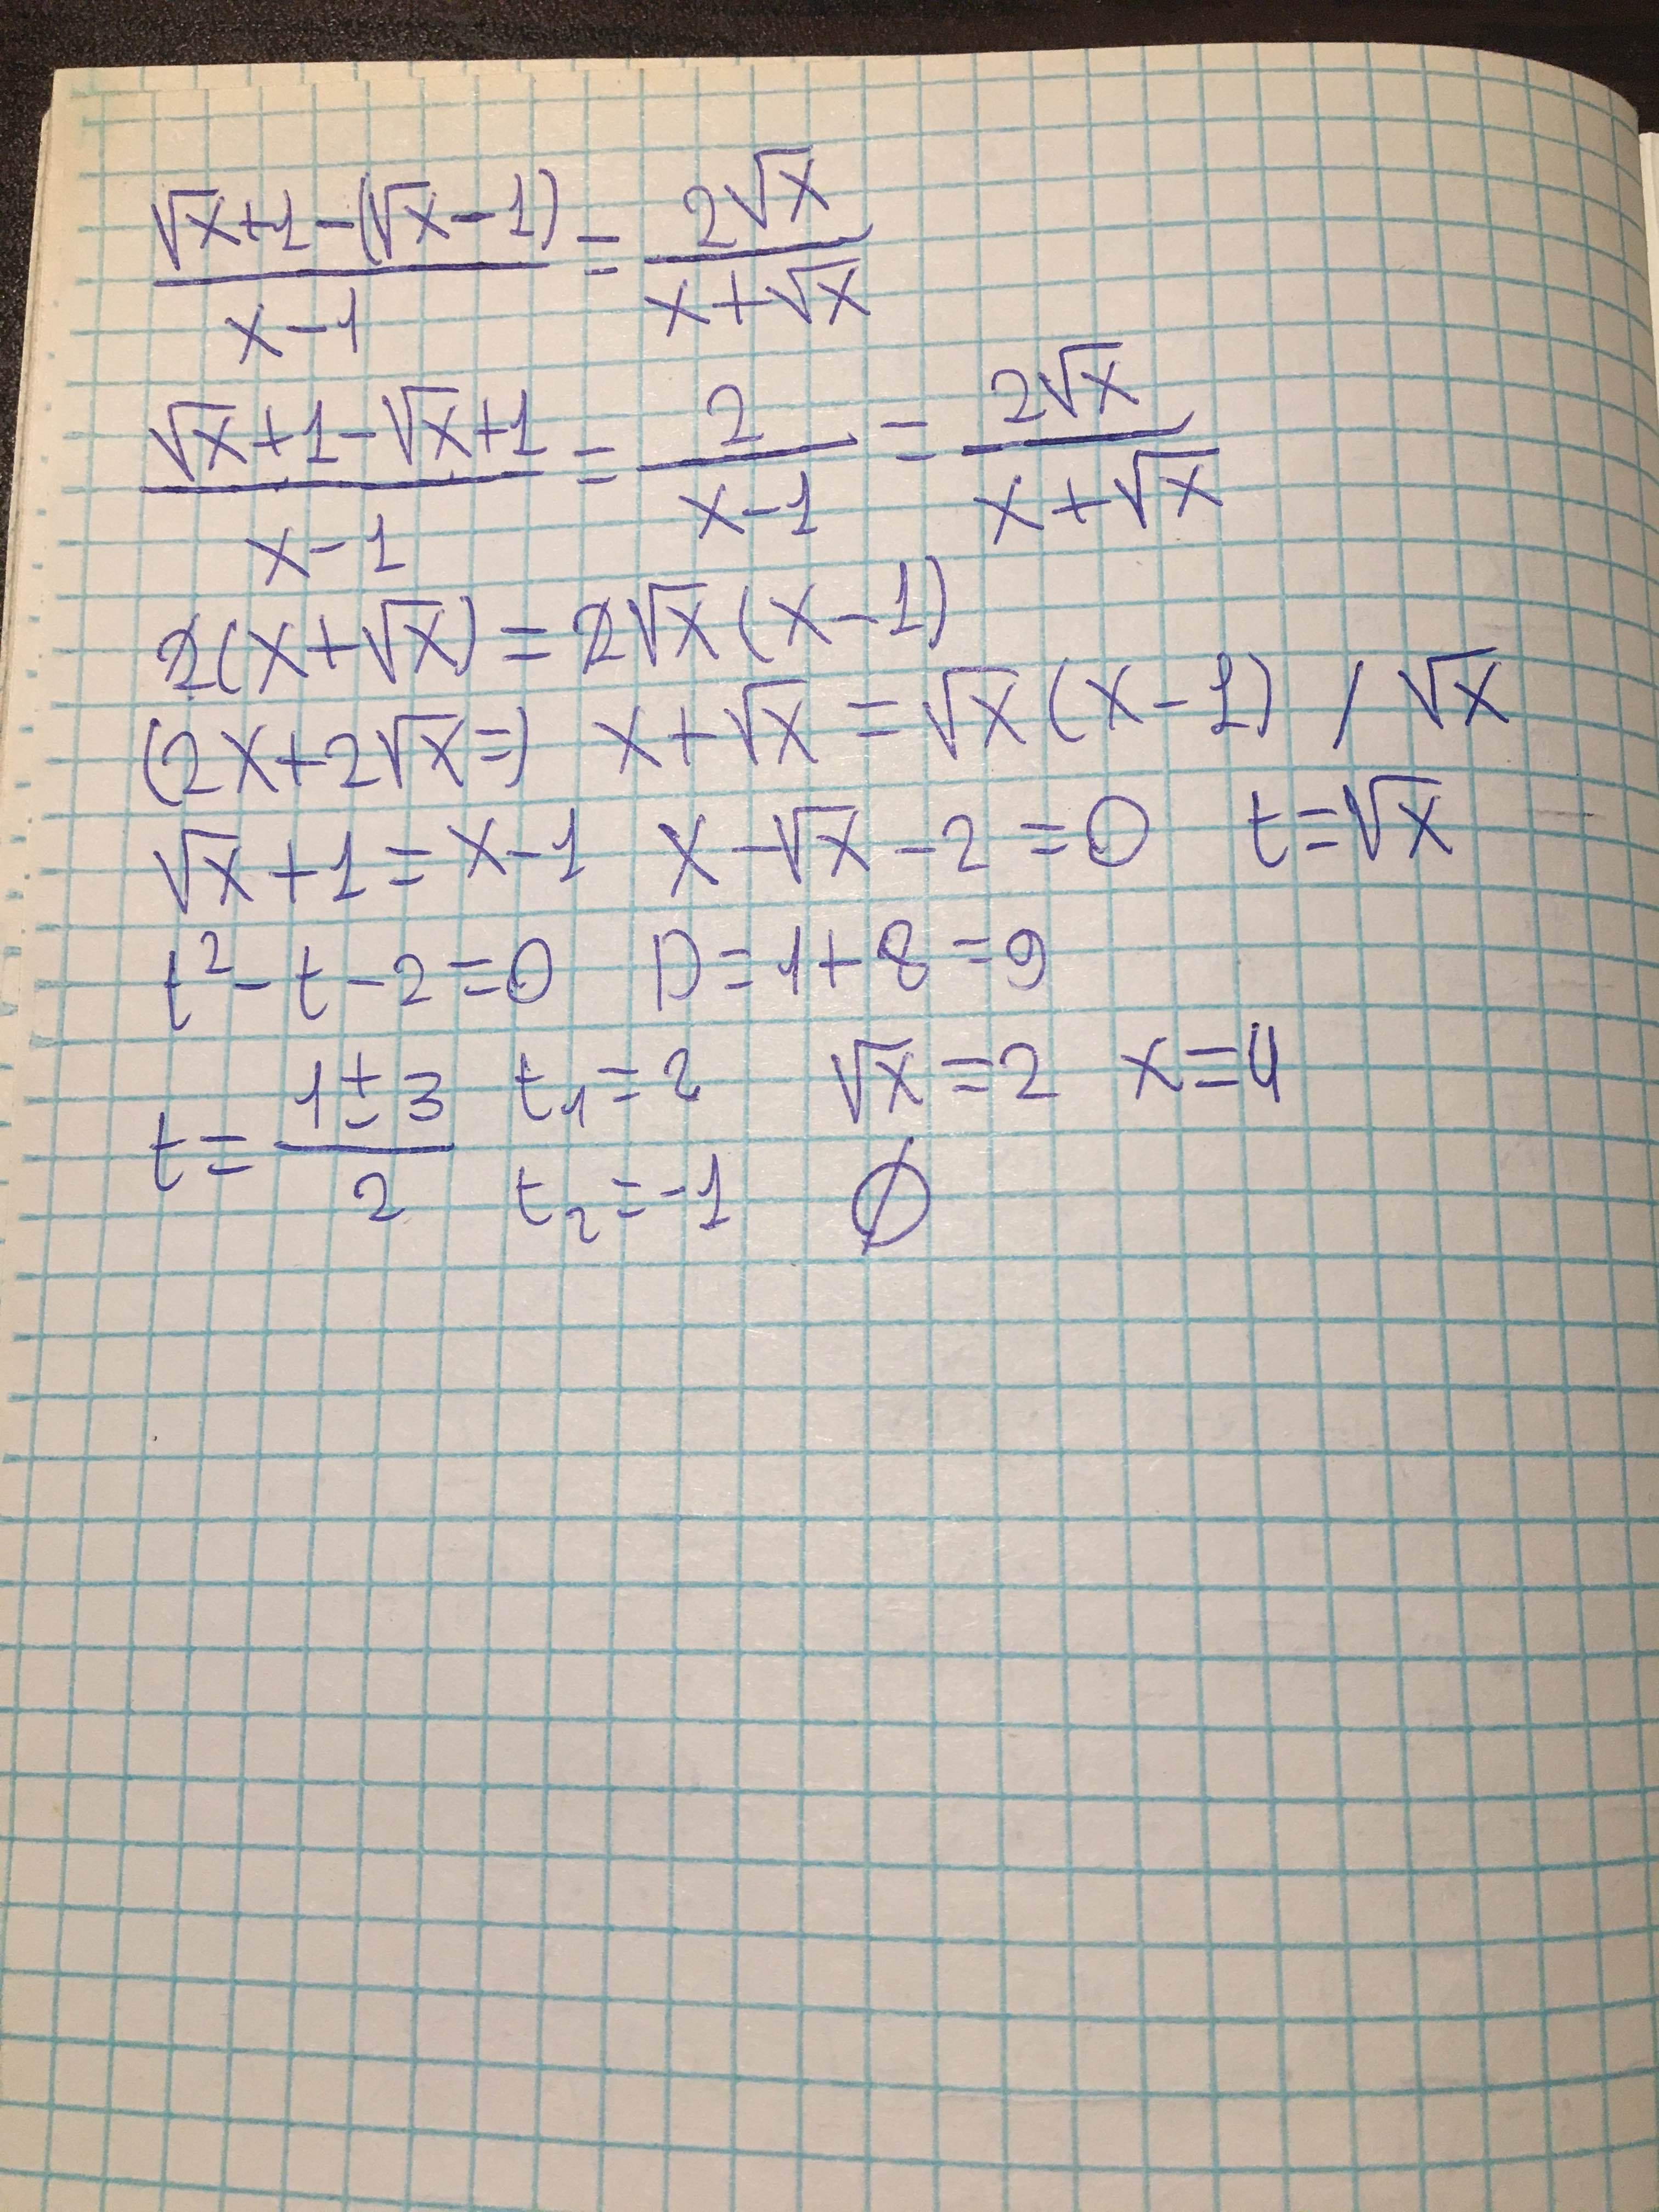 (√x+1-(√x-1))/(x-1) = 2√x/(x+√x)
(√x+1-√x+1)/(x-1) = 2/(x-1) = 2√x/(x+√x)
2(x+√x)=2√x(x-1)
(2x+2√x=) x+√x=√x(x-1) / √x
√x+1=x-1 x-√x-2=0 t=√x
t²-t-2=0 D=1+8=9
t=(1±3)/2 t₁=2 √x=2 x=4
t₂=-1 ∅